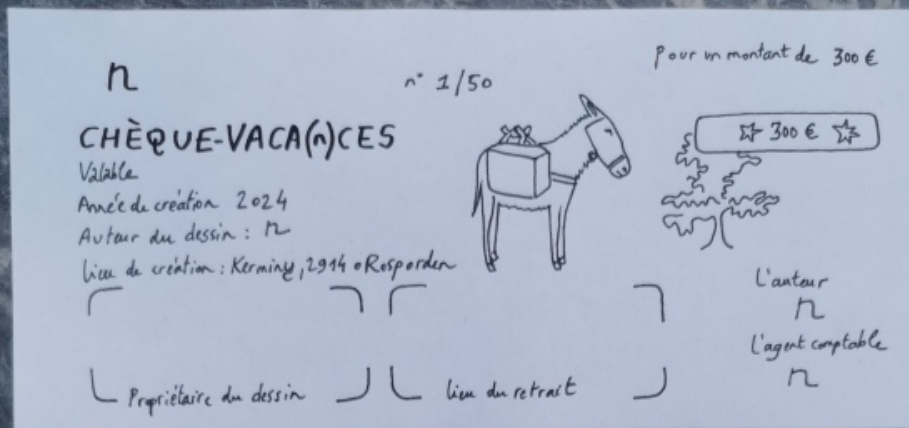 n
n° 1/50
pour un montant de 300 €
CHÈQUE-VACA(n)CES
☆ 300 € ☆
Valable
Année de création 2024
Auteur du dessin : n
lieu de création : Kerminy, 29140 Rosporden
L'auteur
n
L'agent comptable
n
Propriétaire du dessin
lieu du retrait